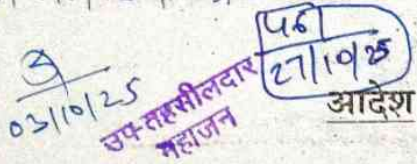 03/10/25
उप-तहसीलदार
महाजन
27/10/25
आदेश